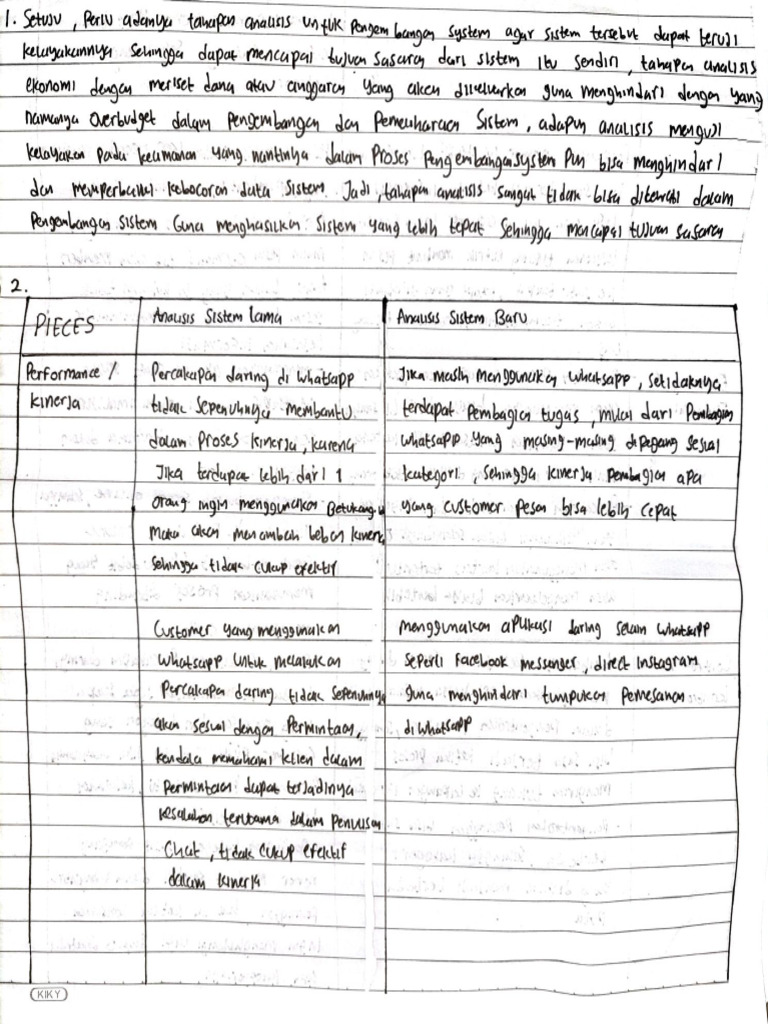 1. Setuju, Perlu adanya tahapan analisis untuk Pengembangan system agar sistem tersebut dapat teruji
kelayakannya Sehingga dapat mencapai tujuan Sasaran dari sistem itu sendiri, tahapan analisis
ekonomi dengan meriset dana atau anggaran yang akan dikeluarkan guna menghindari dengan yang
namanya Overbudget dalam Pengembangan dan Pemeliharaan Sistem, adapun analisis menguji
kelayakan pada keamanan yang nantinya dalam Proses Pengembangan system Pun bisa menghindari
dan memperbaiki kebocoran data Sistem. Jadi, tahapan analisis sangat tidak bisa dilewati dalam
Pengembangan Sistem Guna menghasilkan Sistem yang lebih tepat Sehingga mencapai tujuan sasaran
2.
PIECES
Analisis Sistem Lama
Analisis Sistem Baru
Performance /
Kinerja
Percakapan daring di whatsapp
tidak sepenuhnya membantu
dalam Proses kinerja, karena
Jika terdapat lebih dari 1
orang ingin menggunakan Betukang
maka akan menambah beban kinerja
Sehingga tidak cukup efektif
Jika masih menggunakan Whatsapp, setidaknya
terdapat Pembagian tugas, mulai dari Pembagian
Whatsapp yang masing-masing dipegang sesuai
kategori, sehingga kinerja Pembagian apa
yang customer Pesan bisa lebih cepat
Customer yang menggunakan
Whatsapp untuk melakukan
Percakapan daring tidak sepenuhnya
akan sesuai dengan Permintaan,
kendala memahami klien dalam
Permintaan dapat terjadinya
kesalahan terutama dalam Penulisan
Chat, tidak cukup efektif
dalam kinerja
menggunakan aplikasi daring selain Whatsapp
Seperti Facebook messenger, direct Instagram
guna menghindari tumpukan Pemesanan
di Whatsapp
KIKY